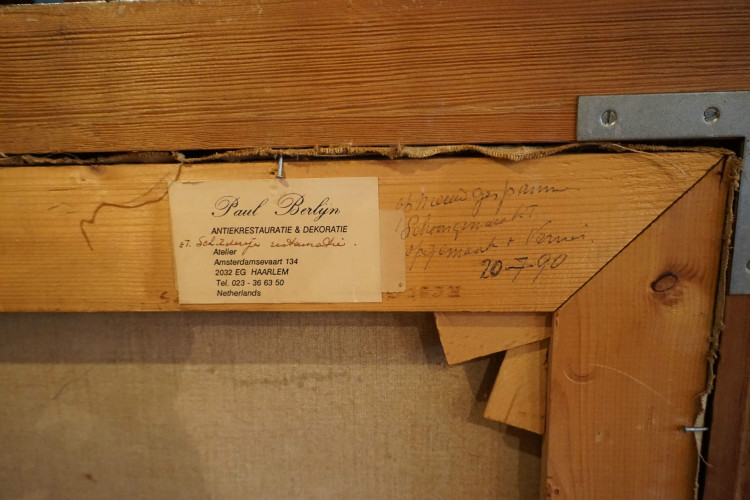 Paul Berlijn
ANTIEKRESTAURATIE & DEKORATIE
et. Schilderije restauratie.
Atelier
Amsterdamsevaart 134
2032 EG HAARLEM
Tel. 023 - 36 63 50
Netherlands
opnieuw gespannen
Schoongemaakt
opgemaakt + Vernis.
20-7-90